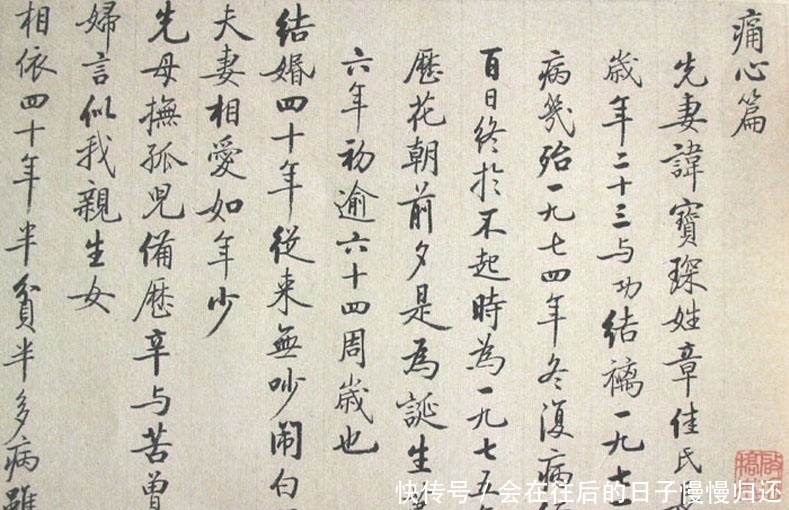 痛心篇
先妻諱寶琛姓章佳氏
歲年二十三与功結褵一九七
病幾殆一九七四年冬復病
百日終於不起時為一九七五年
歷花朝前夕是為誕生
六年初逾六十四周歲也
結婚四十年從來無吵鬧白
夫妻相愛如年少
先母撫孤兒備歷辛与苦曾
婦言似我親生女
相依四十年半貧半多病雖
快传号/会在往后的日子慢慢归还